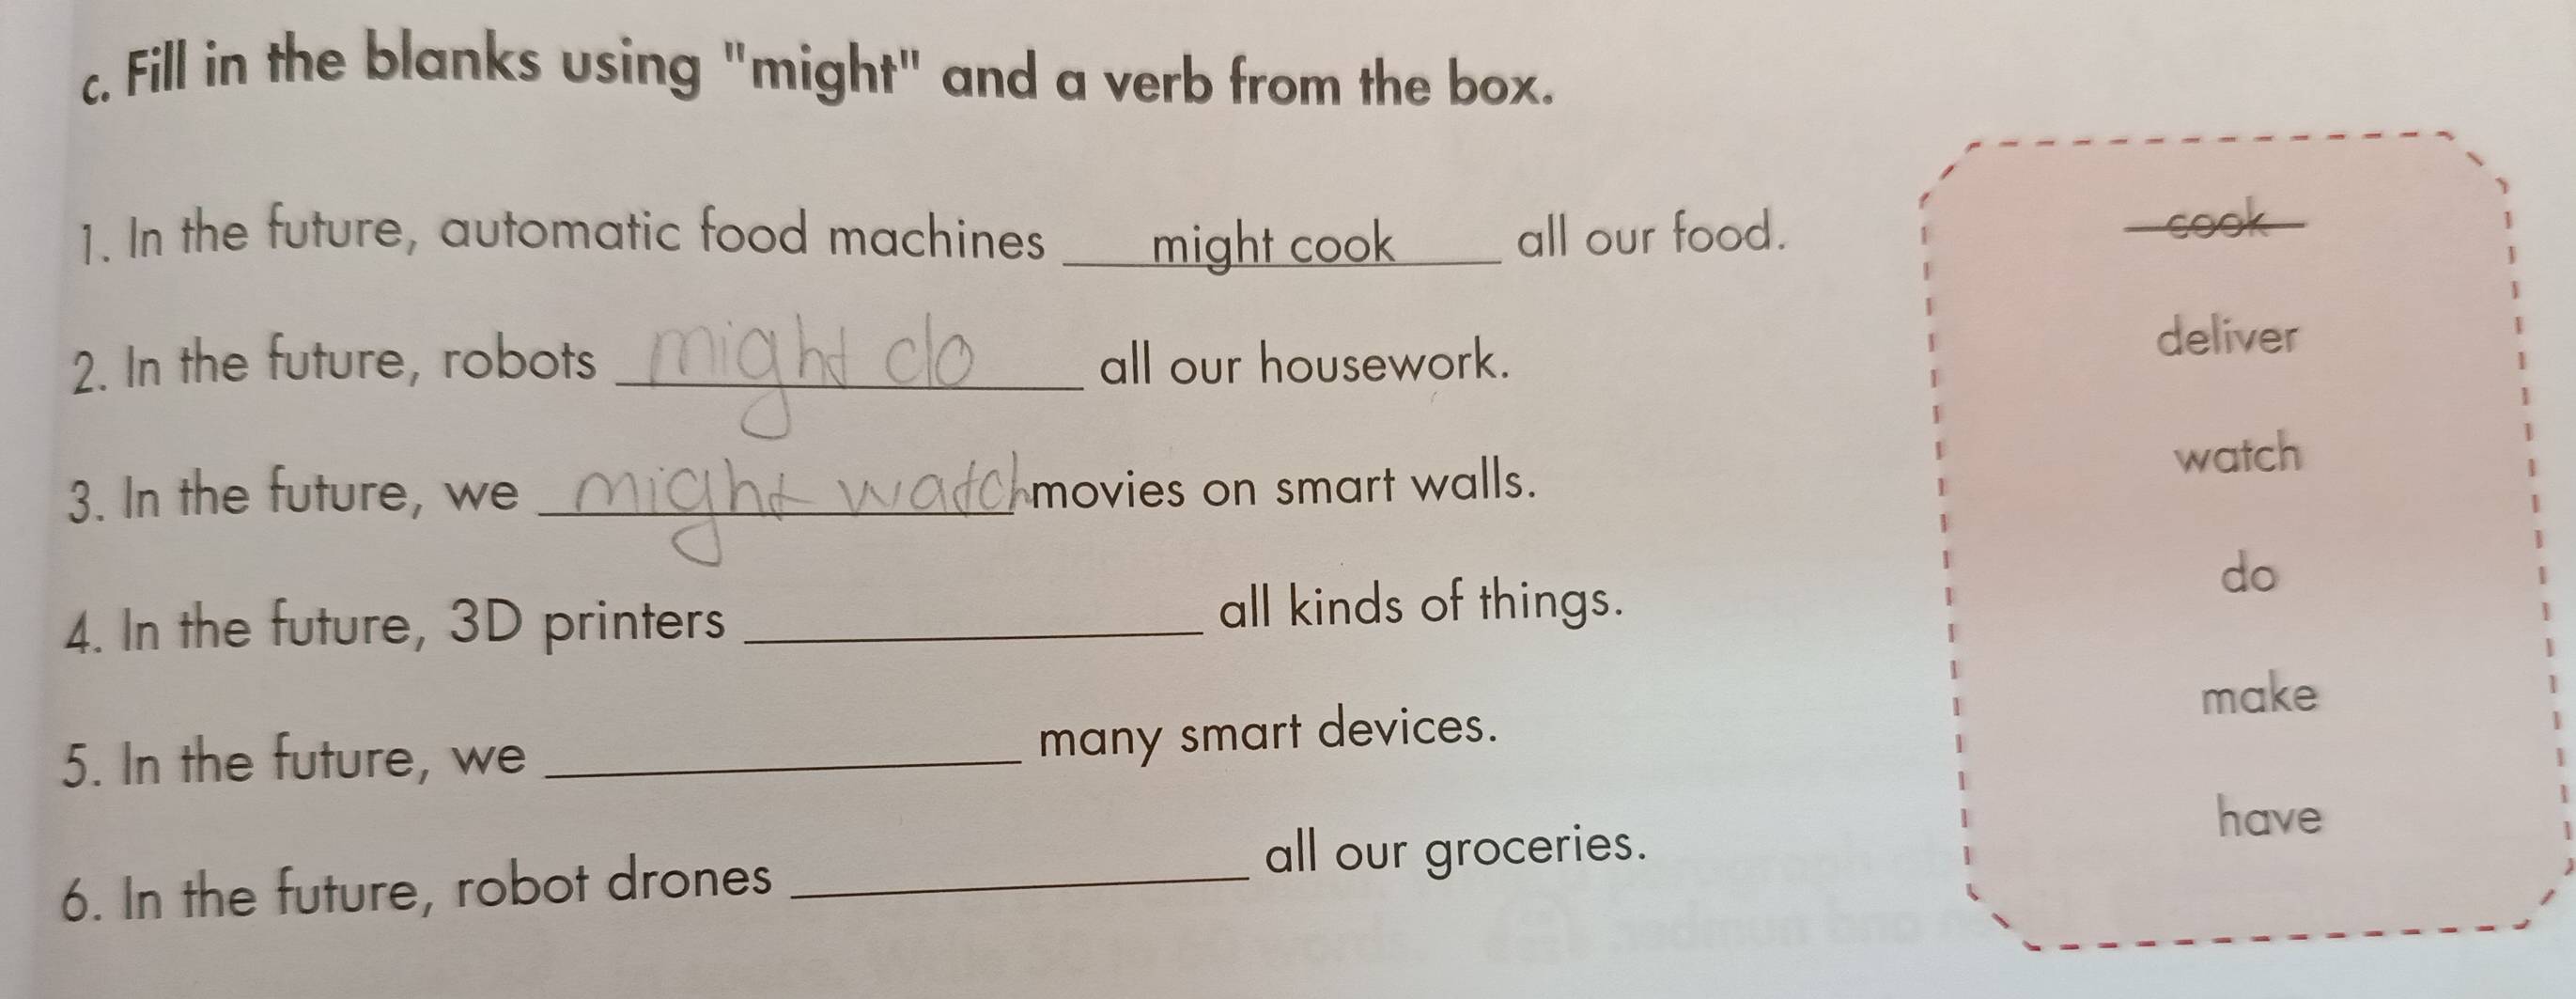 c. Fill in the blanks using "might" and a verb from the box.
1. In the future, automatic food machines might cook all our food.
2. In the future, robots might do all our housework.
3. In the future, we might watch movies on smart walls.
4. In the future, 3D printers ____ all kinds of things.
5. In the future, we ____ many smart devices.
6. In the future, robot drones ____ all our groceries.
cook
deliver
watch
do
make
have